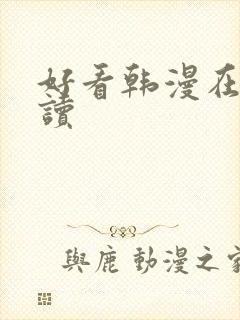 好看韩漫在
讀
與鹿 動漫之家